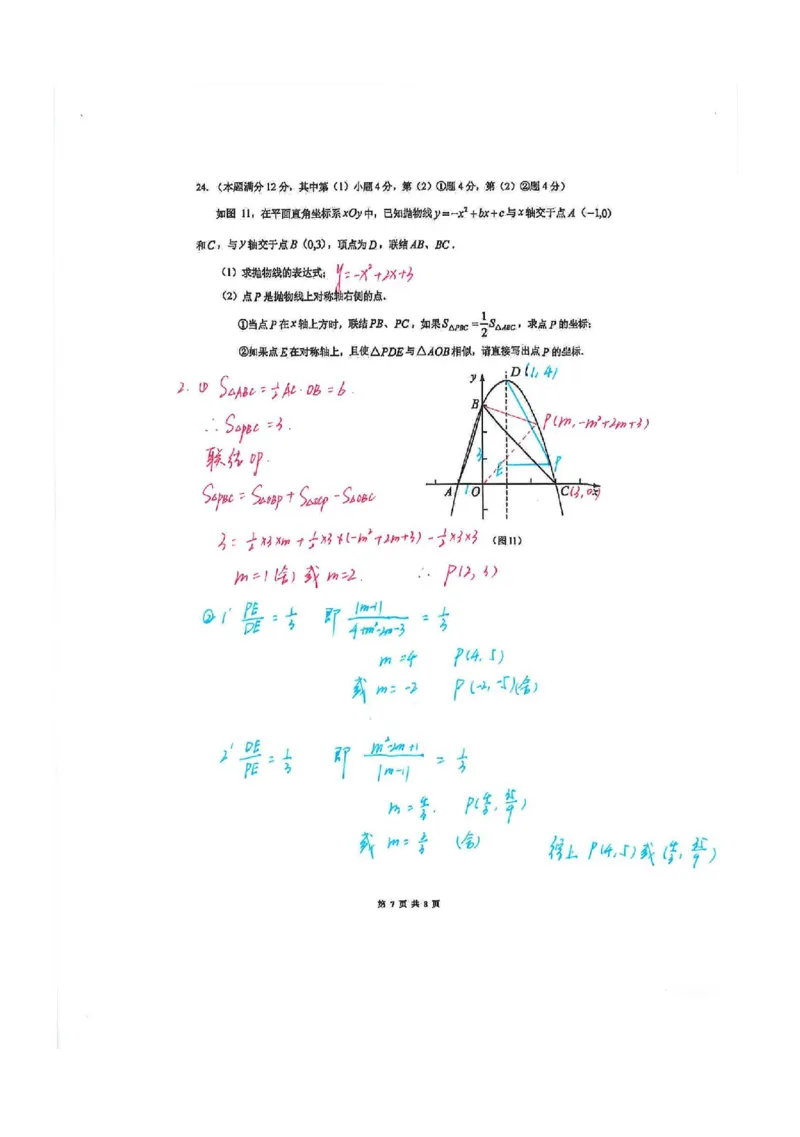 24.（本题满分12分，其中第（1）小题4分，第（2）①题4分，第（2）②题4分）
如图 11，在平面直角坐标系xOy中，已知抛物线y=-x²+bx+c与x轴交于点A（-1,0）
和C，与y轴交于点B（0,3），顶点为D，联结AB、BC．
（1）求抛物线的表达式； y=-x²+2x+3
（2）点P是抛物线上对称轴右侧的点．
①当点P在x轴上方时，联结PB、PC，如果S△PBC=1/2S△ABC，求点P的坐标；
②如果点E在对称轴上，且使△PDE与△AOB相似，请直接写出点P的坐标．
y D (1, 4)
B
P(m, -m²+2m+3)
3 E P
A 1 O C(3, 0) x
（图11）
2. ① S△ABC = 1/2 AC·OB = 6.
∴ S△PBC = 3.
联结OP.
S△PBC = S△OBP + S△OCP - S△OBC
3 = 1/2×3×m + 1/2×3×(-m²+2m+3) - 1/2×3×3
m=1(舍) 或 m=2. ∴ P(2, 3)
② 1' PE/DE = 1/3 即 |m-1|/4+m²-2m-3 = 1/3
m=4 P(4, 5)
或 m=-2 P(-2, -5)(舍)
2' DE/PE = 1/3 即 m²-2m+1/|m-1| = 1/3
m=4/3. P(4/3, 35/9)
或 m=2/3 (舍)
综上 P(4, 5)或(4/3, 35/9)
第 7 页 共 8 页